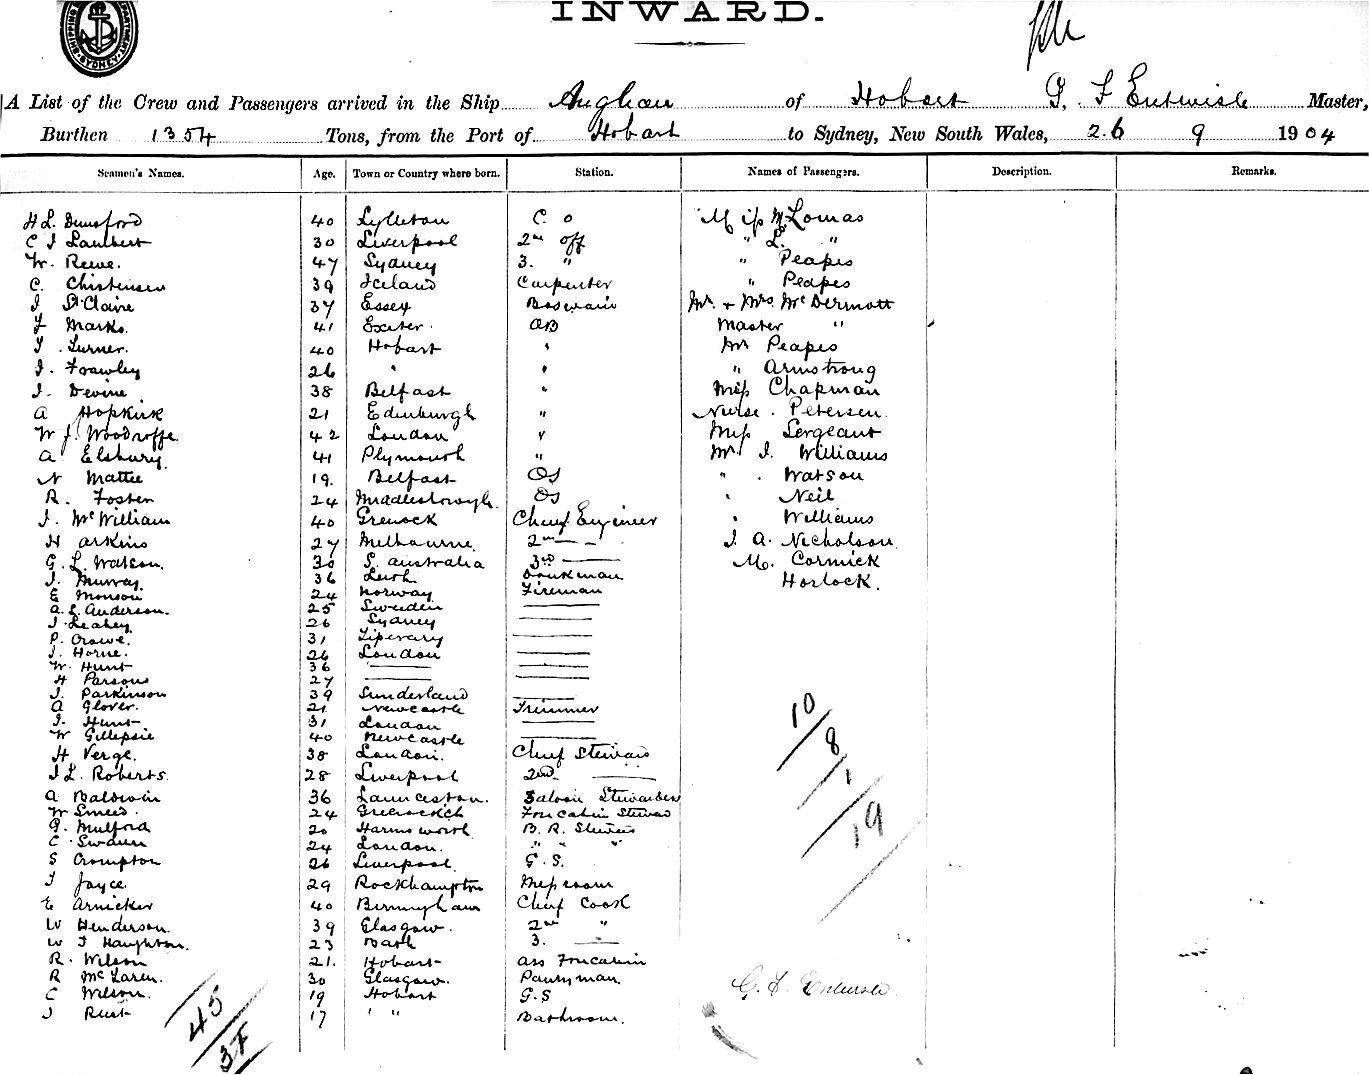 INWARD.
A List of the Crew and Passengers arrived in the Ship Anglian of Hobart Entwisle Master,
Burthen 1354 Tons, from the Port of Hobart to Sydney, New South Wales, 26 9 1904
Seamen's Names. Age. Town or Country where born. Station. Names of Passengers. Description. Remarks.
H L. Dunsford 40 Lyttleton C. O Miss McLomas
C J Lambert 30 Liverpool 2nd off " L. "
W. Rewe. 47 Sydney 3. " " Peapes
C. Christensen 39 Iceland Carpenter " Peapes
J St Claire 37 Essex Boswain Mr. + Mrs. McDermott
F Marks. 41 Exeter. AB Master "
T. Turner. 40 Hobart " Mr Peapes
J. Frawley 26 " " " Armstrong
J. Devine 38 Belfast " Miss Chapman
A Hopkirk 21 Edinburgh " Nurse. Petersen
W J. Woodroffe. 42 London " Miss Sergeant
A Elsbury. 41 Plymouth " Mr J. Williams
N Mattie 19. Belfast OS " . Watson
R. Foster 24 Middlesborough. OS " Neil
J. McWilliam 40 Grenock Chief Engineer " Williams
H Arkins 27 Melbourne 2nd J. A. Nicholson
G. L. Watson. 30 S. Australia 3rd M. Cormick
J. Murray. 36 Leith Donkman Horlock.
E Monson 24 Norway Fireman
A. L. Anderson. 25 Sweden
J. Leahey. 26 Sydney
P. Crowe. 31 Tiperary
J. Horne. 26 London
W. Hunt 36
H Parsons 27
J. Parkinson 39 Sunderland
A Glover. 21 Newcastle Trimmer
J. Hunt 31 London
W Gillepsie 40 Newcastle
H Verge. 38 London. Chief Steward
J L. Roberts. 28 Liverpool 2nd
A Baldwin 36 Launceston. Saloon Stewardess
W Smeed. 24 Forecabin Steward
G. Mulford 20 Harmsworth B. R. Steward
C. 24 London. " " "
S Crompton 26 Liverpool. G. S.
J Joyce. 29 Rockhampton Messroom
E Arnicker 40 Birmingham Chief Cook
W Henderson. 39 Glasgow. 2nd "
W J Haughton. 23 Bath 3.
R. Wilson 21. Hobart Ass Forecabin
R McLaren. 30 Glasgow. Pantryman.
C Wilson. 19 Hobart G.S
J Rust 17 " " Bathroom.
10
8
1
19
45